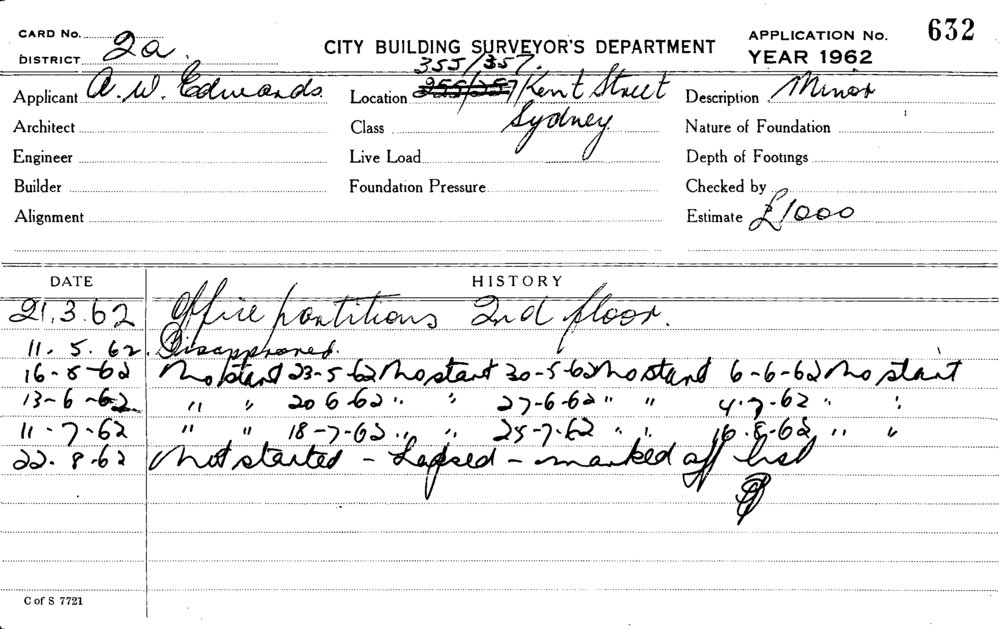 CARD No. 2a. CITY BUILDING SURVEYOR'S DEPARTMENT APPLICATION No. 632
DISTRICT YEAR 1962
355/357.
Applicant A. W. Edwards. Location 255/257 Kent Street Description Minor
Architect Class Sydney Nature of Foundation
Engineer Live Load Depth of Footings
Builder Foundation Pressure Checked by
Alignment Estimate £1000
DATE HISTORY
21.3.62 Office partitions 2nd floor.
11.5.62. Disapproved.
16-5-62 No start 23-5-62 No start 30-5-62 No start 6-6-62 No start
13-6-62 " " 20 6 62 " " 27-6-62 " " 4.7.62 " "
11-7-62 " " 18-7-62 " " 25-7.62 " " 16.8.62 " "
22.8.62 Not started - Lapsed - marked off list
C of S 7721